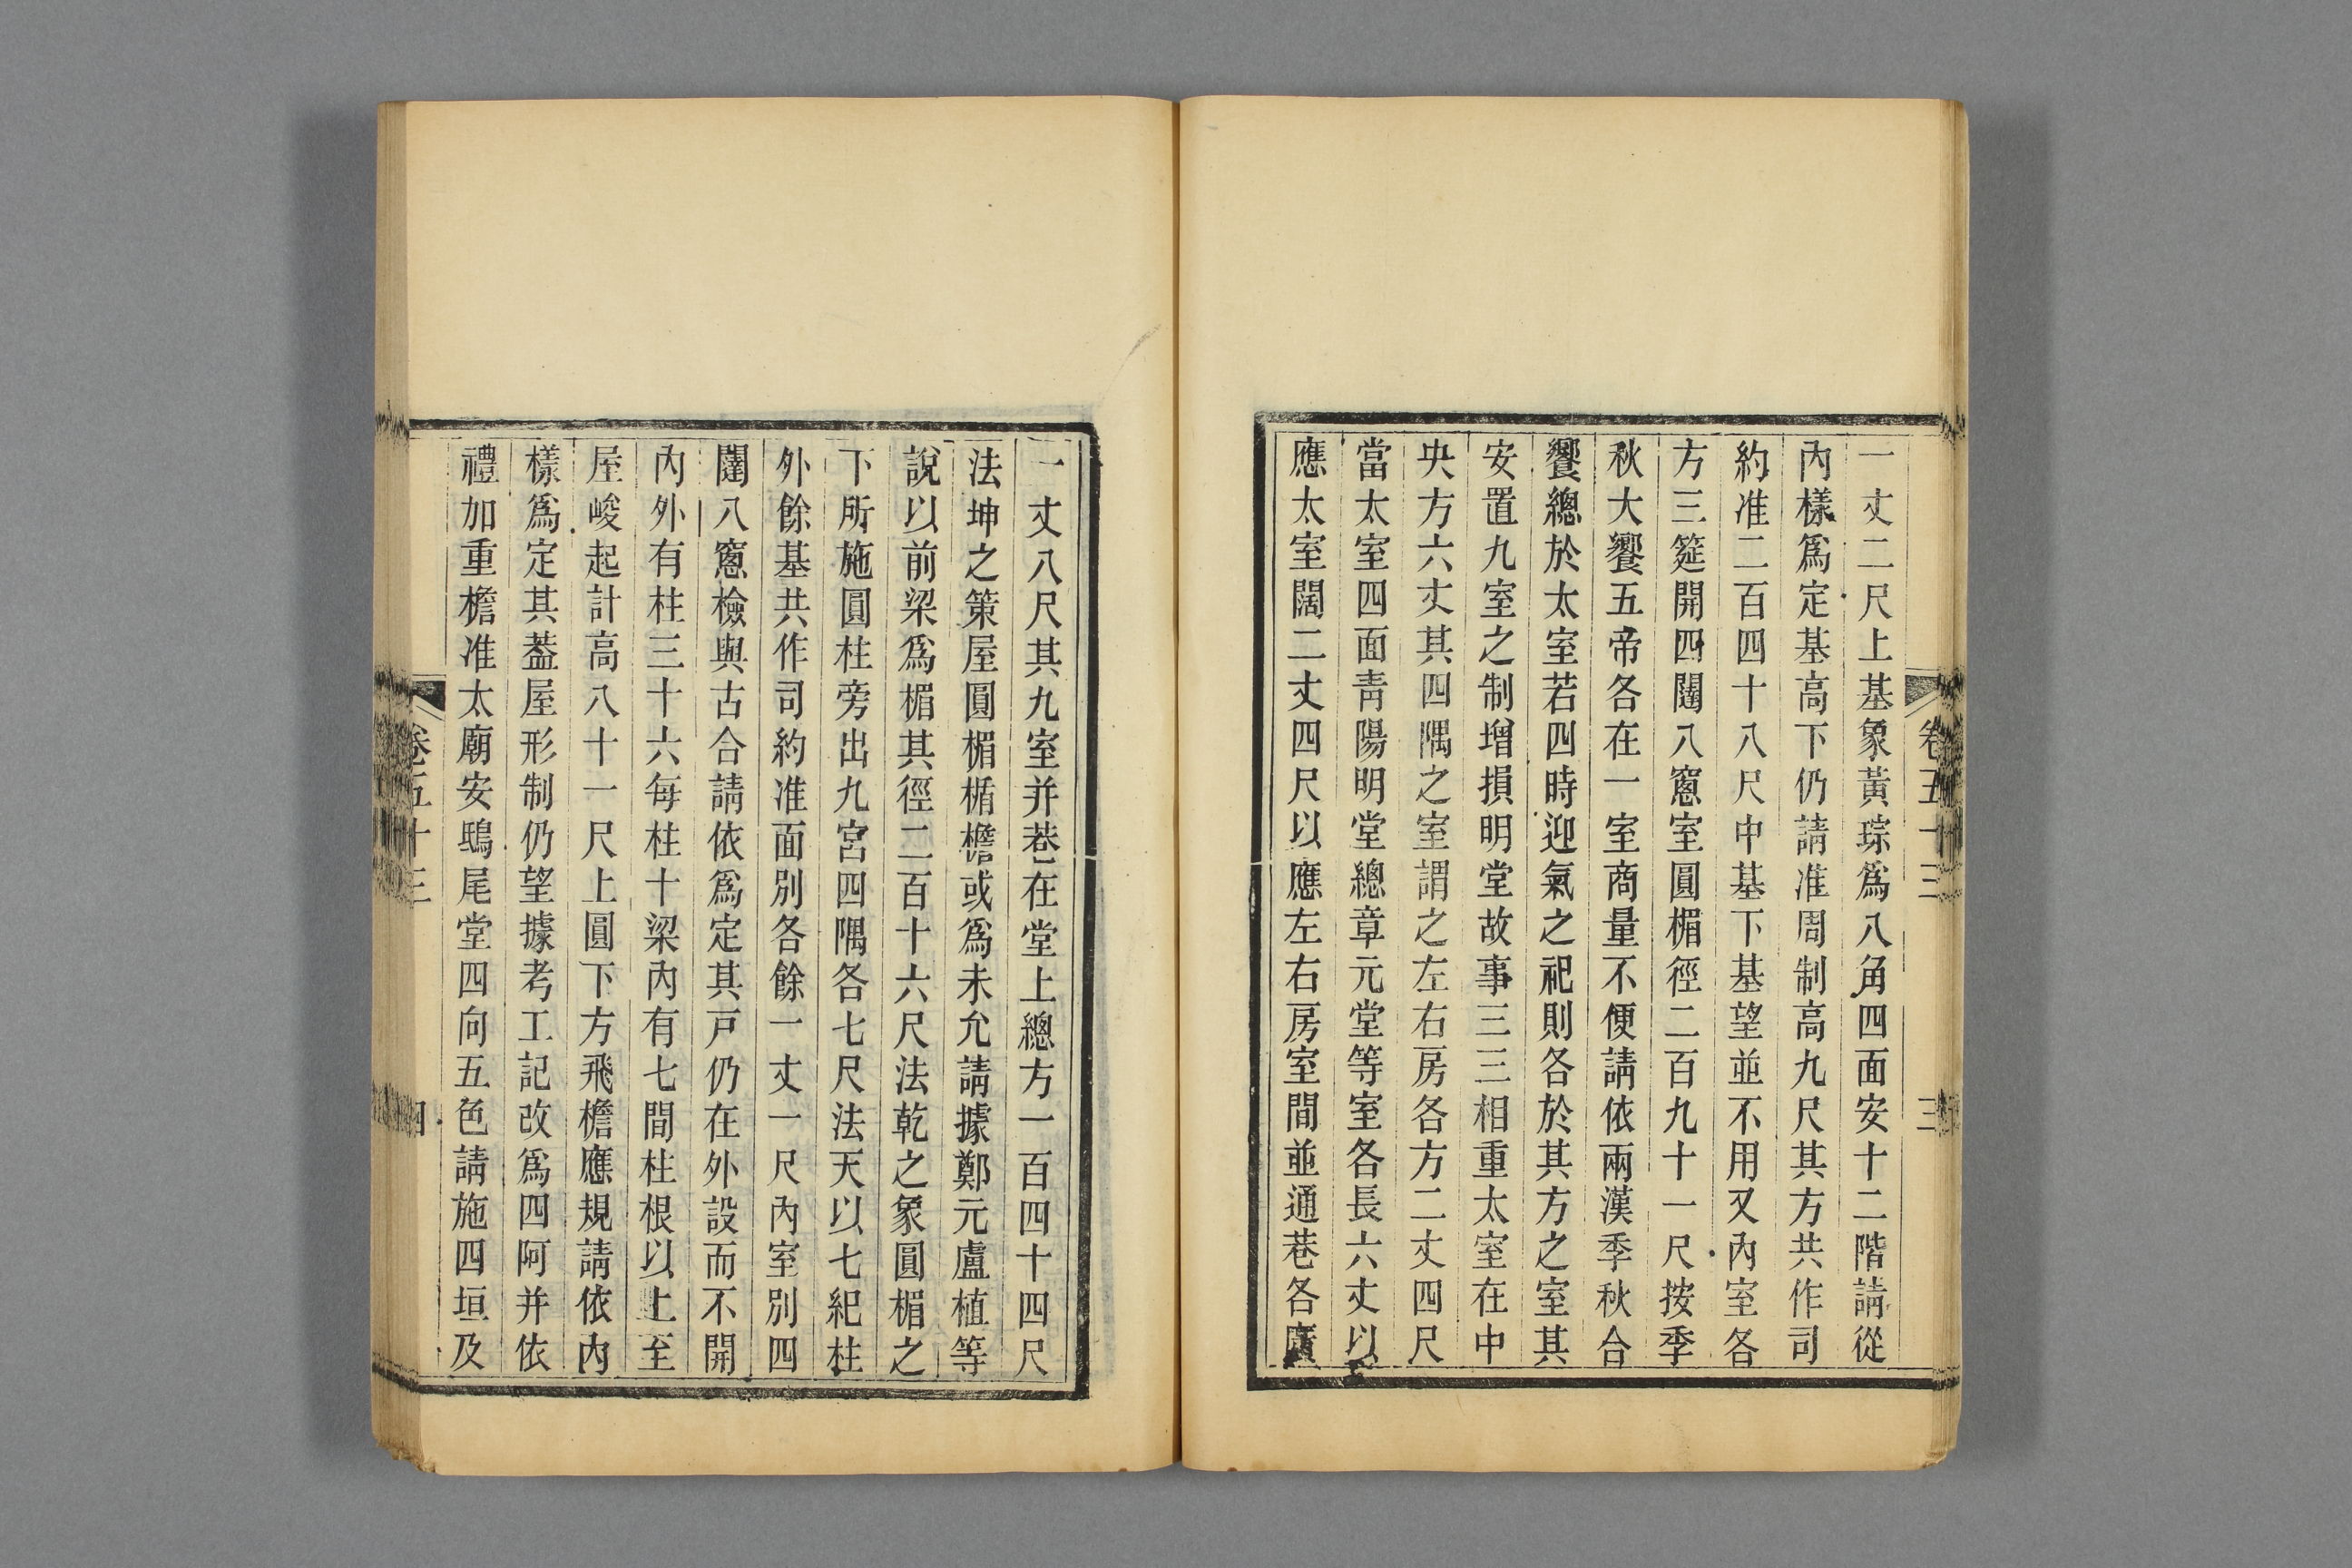 一丈二尺上基象黃琮爲八角四面安十二階請從
內樣爲定基高下仍請准周制高九尺其方共作司
約准二百四十八尺中基下基望並不用又內室各
方三筵開四闥八窻室圓楣徑二百九十一尺按季
秋大饗五帝各在一室商量不便請依兩漢季秋合
饗總於太室若四時迎氣之祀則各於其方之室其
安置九室之制增損明堂故事三三相重太室在中
央方六丈其四隅之室謂之左右房各方二丈四尺
當太室四面靑陽明堂總章元堂等室各長六丈以
應太室闊二丈四尺以應左右房室間並通巷各廣
卷五十三
三
一丈八尺其九室并巷在堂上總方一百四十四尺
法坤之策屋圓楣楯檐或爲未允請據鄭元盧植等
說以前梁爲楣其徑二百十六尺法乾之象圓楣之
下所施圓柱旁出九宮四隅各七尺法天以七紀柱
外餘基共作司約准面別各餘一丈一尺內室別四
闥八窻檢與古合請依爲定其戸仍在外設而不開
內外有柱三十六每柱十梁內有七間柱根以上至
屋峻起計高八十一尺上圓下方飛檐應規請依內
樣爲定其葢屋形制仍望據考工記改爲四阿并依
禮加重檐准太廟安鴟尾堂四向五色請施四垣及
卷五十三
四